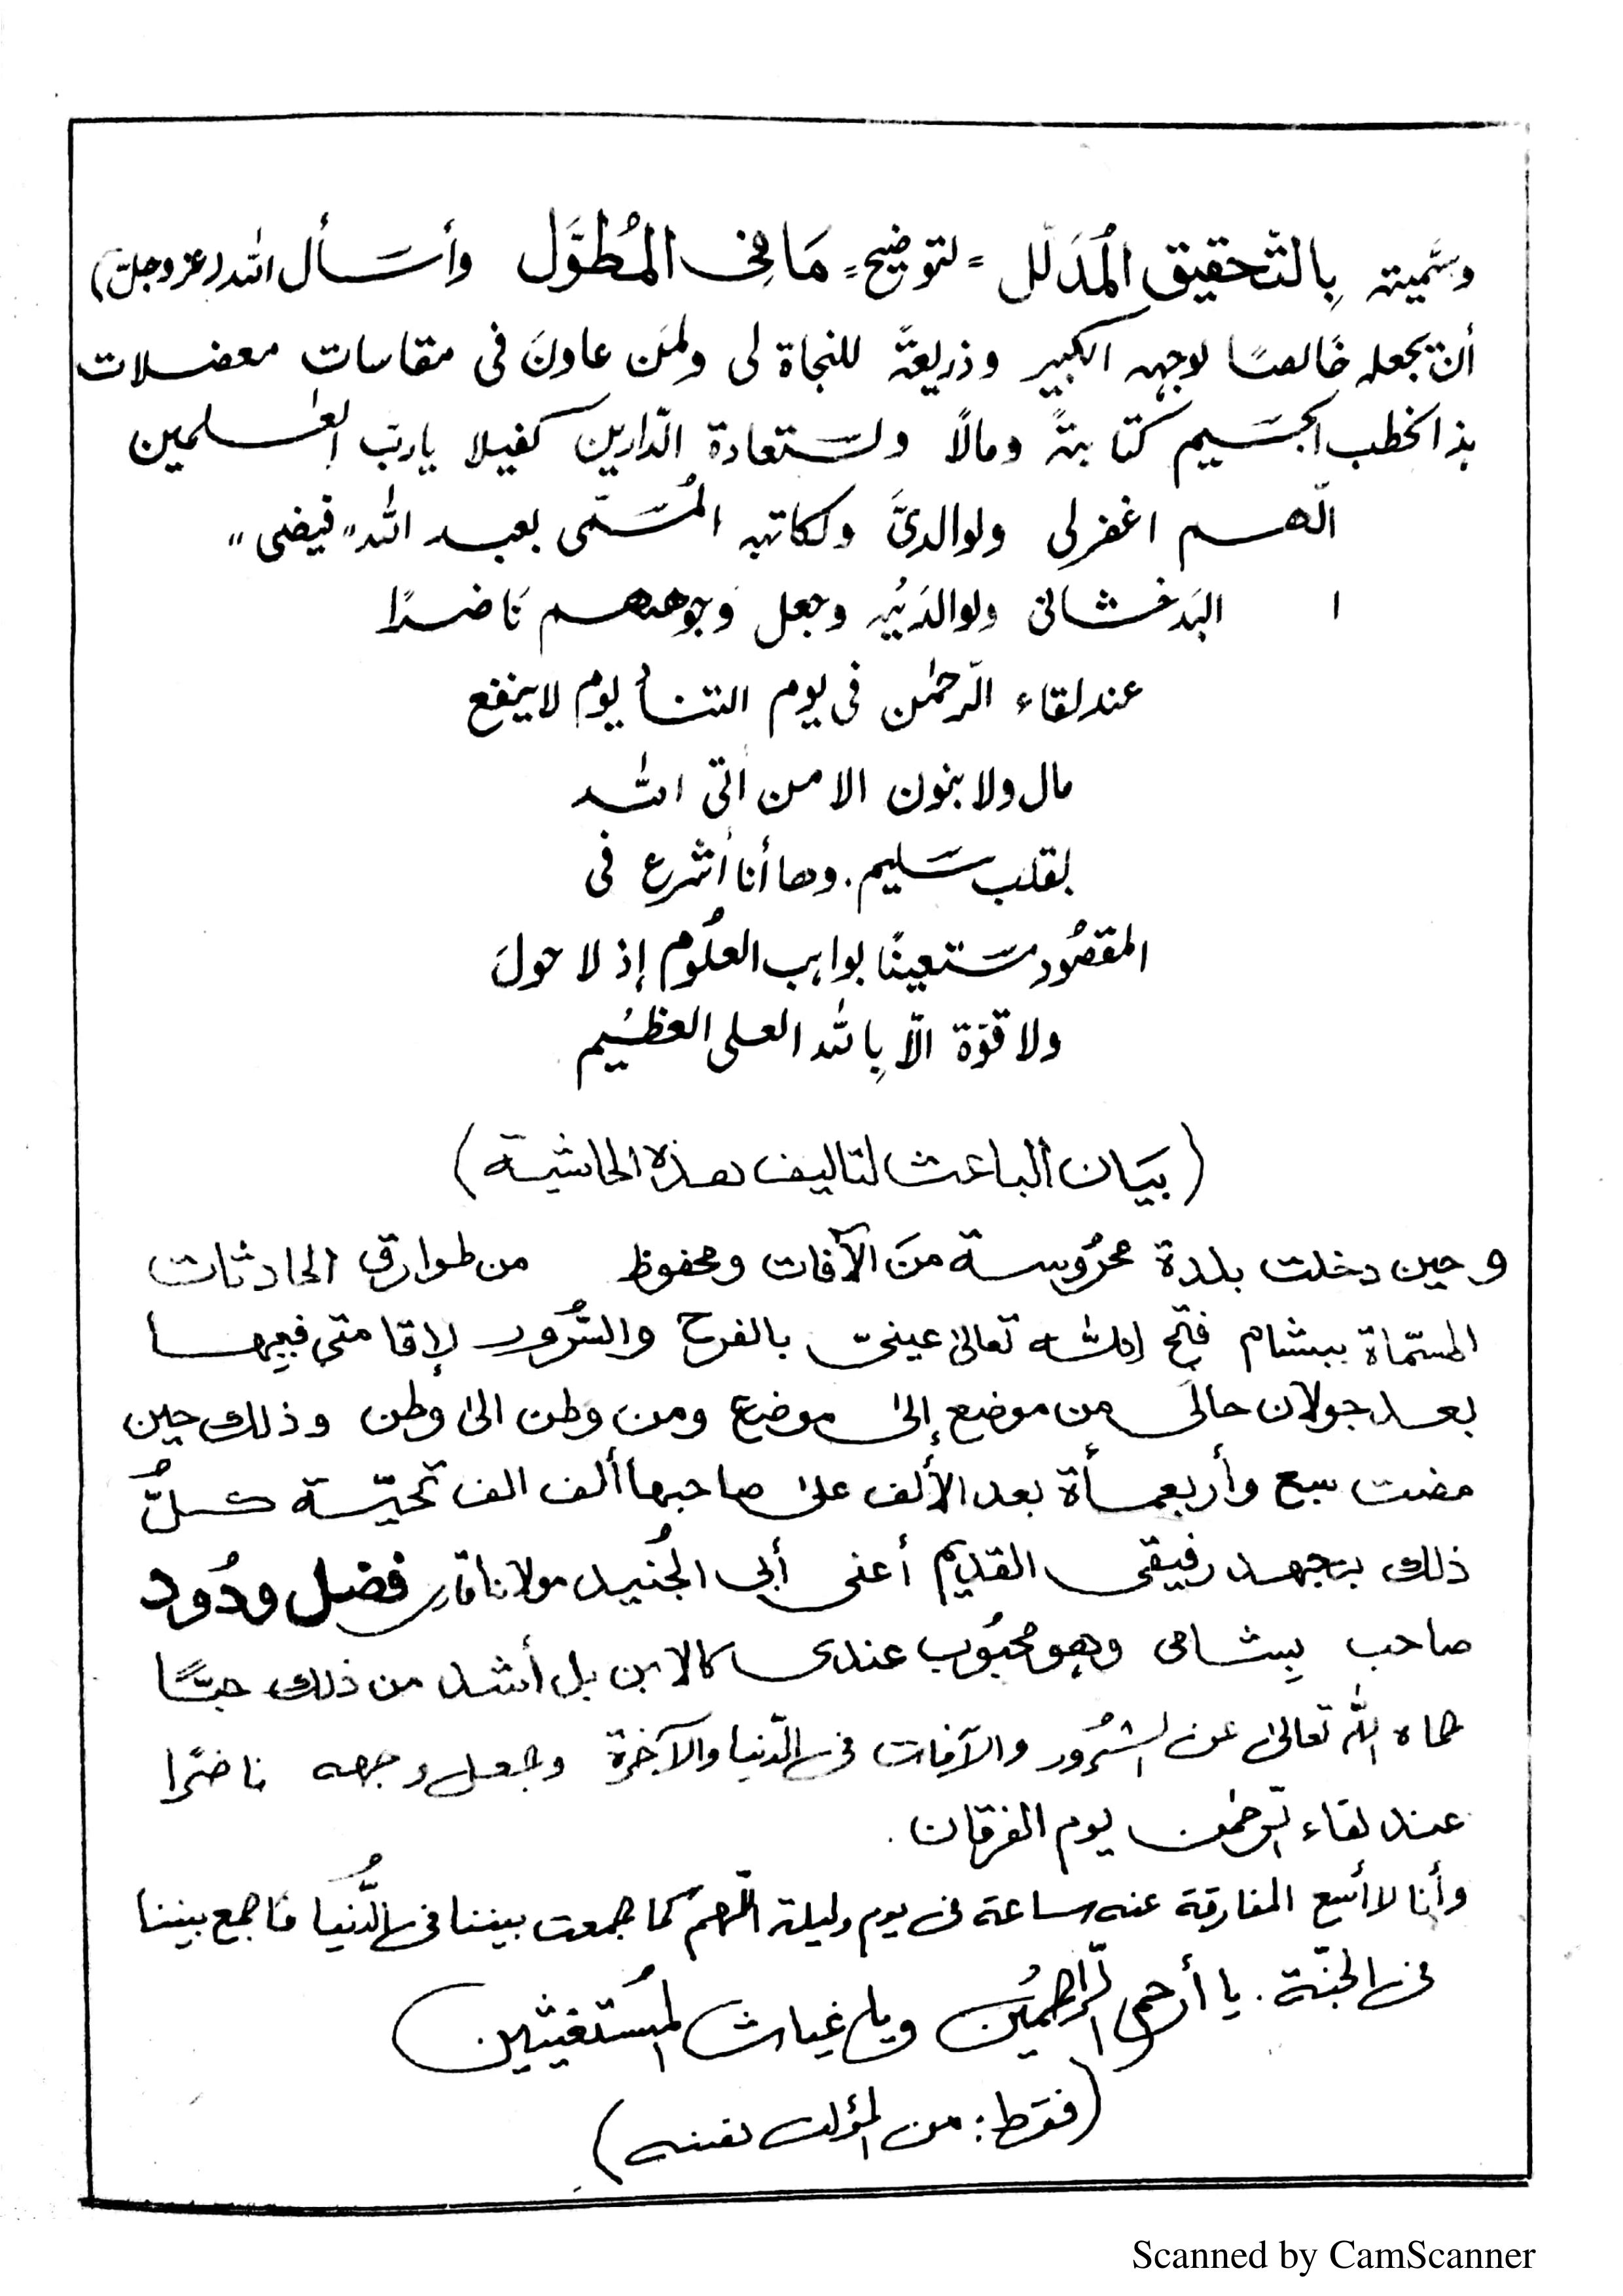 وسَّميته بِالتّحقيق المُدَلّل = لتوضيح = مَا فِى المُطوَّل وأسَـأل الله (عزوجلّ)
أن يجعله خَالصًا لوجهه الكبير وذريعةً للنجاة لى ولمَن عاونَ فى مقاسات معضلات
هذا الخطب الجسيم كتابةً ومالًا ولسَتعادة الدّارين كفيلا يارب العٰلمين
الّٰهم اغفرلى ولوالدىَّ ولكاتبه المُسَمّى بعبد الله "فيضى"
ا البَدخشانى ولوالدَيْه وجعل وَجوههم نَاضرًا
عند لقاء الرّحمٰن فى يوم التنـأ يوم لاينفع
مال ولا بنون الا من اَتى الله
بقلب سَليم. وها أنا أشرع فى
المقصُود مسَتعينًا بواهب العلُوم إذ لا حولَ
ولا قوّة الّا بِالله العلى العظيم
(بيَان الباعث لتاليف هذه الحاشية)
و حين دخلت بلدة محرُوسة منَ الآفات ومحفوظ من طوارق الحادثات
المسمّاة ببشام فتح الله تعالىٰ عينىّ بالفرح والسُّرور لإقامتى فيها
بعد جولان حالى من موضع إلىٰ موضع ومن وطن الىٰ وطن وذلك حين
مضت سبع وأربعمأة بعد الألف علىٰ صاحبها ألف الف تحيّة كلُّ
ذلك بجهد رفيقى القديم أعنى أبى الجُنيد مولانا قارى فضل ودُود
صاحب بِشامى وهو محبُوب عندى كالابن بل أشد من ذلك حبًّا
حماه الله تعالىٰ عن الشرُور والآفات فى الدّنيا والآخرة وجعل وجهه ناضرًا
عند لقاء الرّحمٰن يوم الفرقان.
وأنا لا أسع المفارقة عنه ساعة فى يوم وليلة الّٰلهم كما جمعت بيننا فى الدُّنيا فاجمع بيننا
فى الجنّة. يا أرحم الرّاحمُين ويا غياث المُستغيثين
(فقط: من المؤلف نفسه)
Scanned by CamScanner